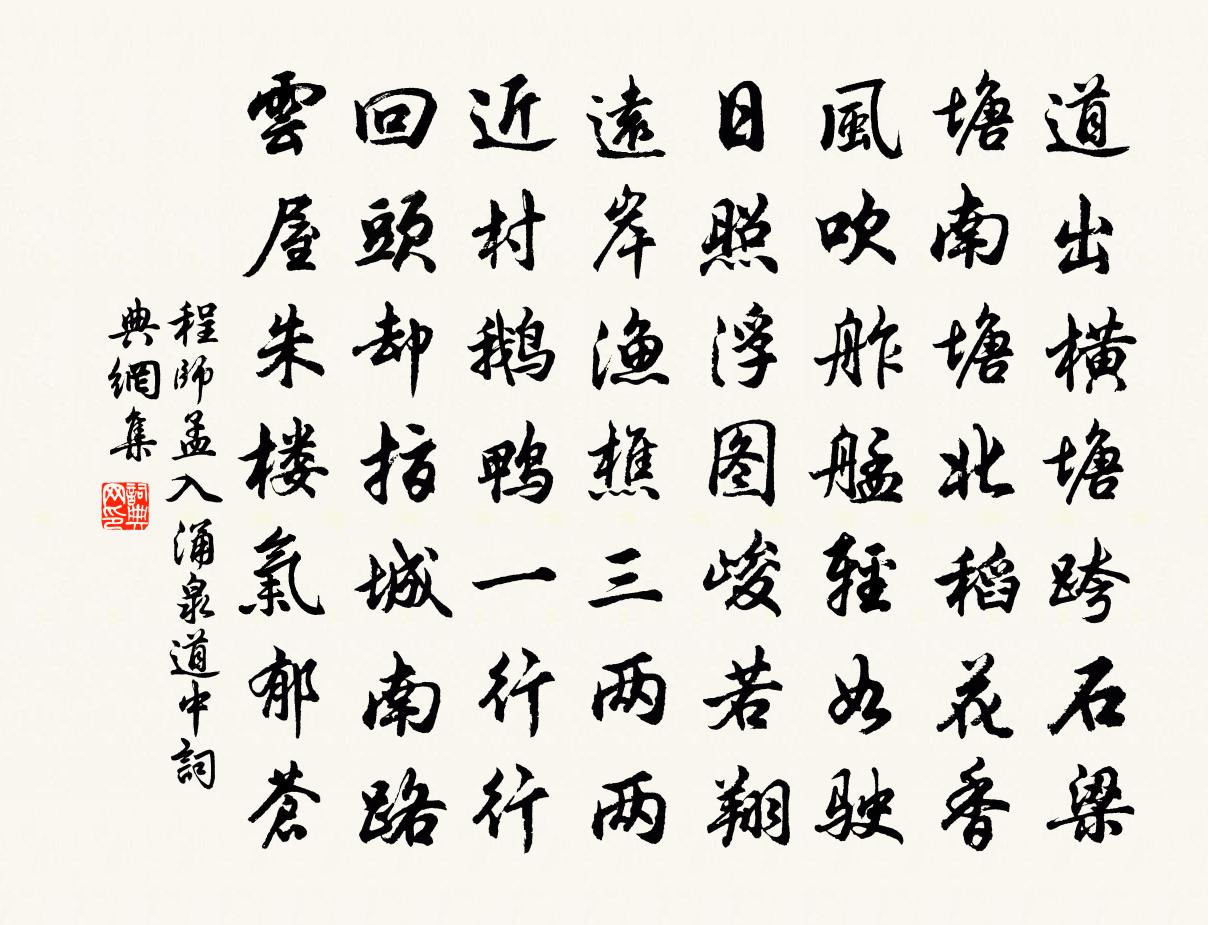 道出橫塘跨石梁
塘南塘北稻花香
風吹舴艋輕如駛
日照浮图峻若翔
遠岸漁樵三两两
近村鹅鸭一行行
回頭却指城南路
雲屋朱楼氣郁蒼
程師孟入涌泉道中詞
典網集
詞典
网印